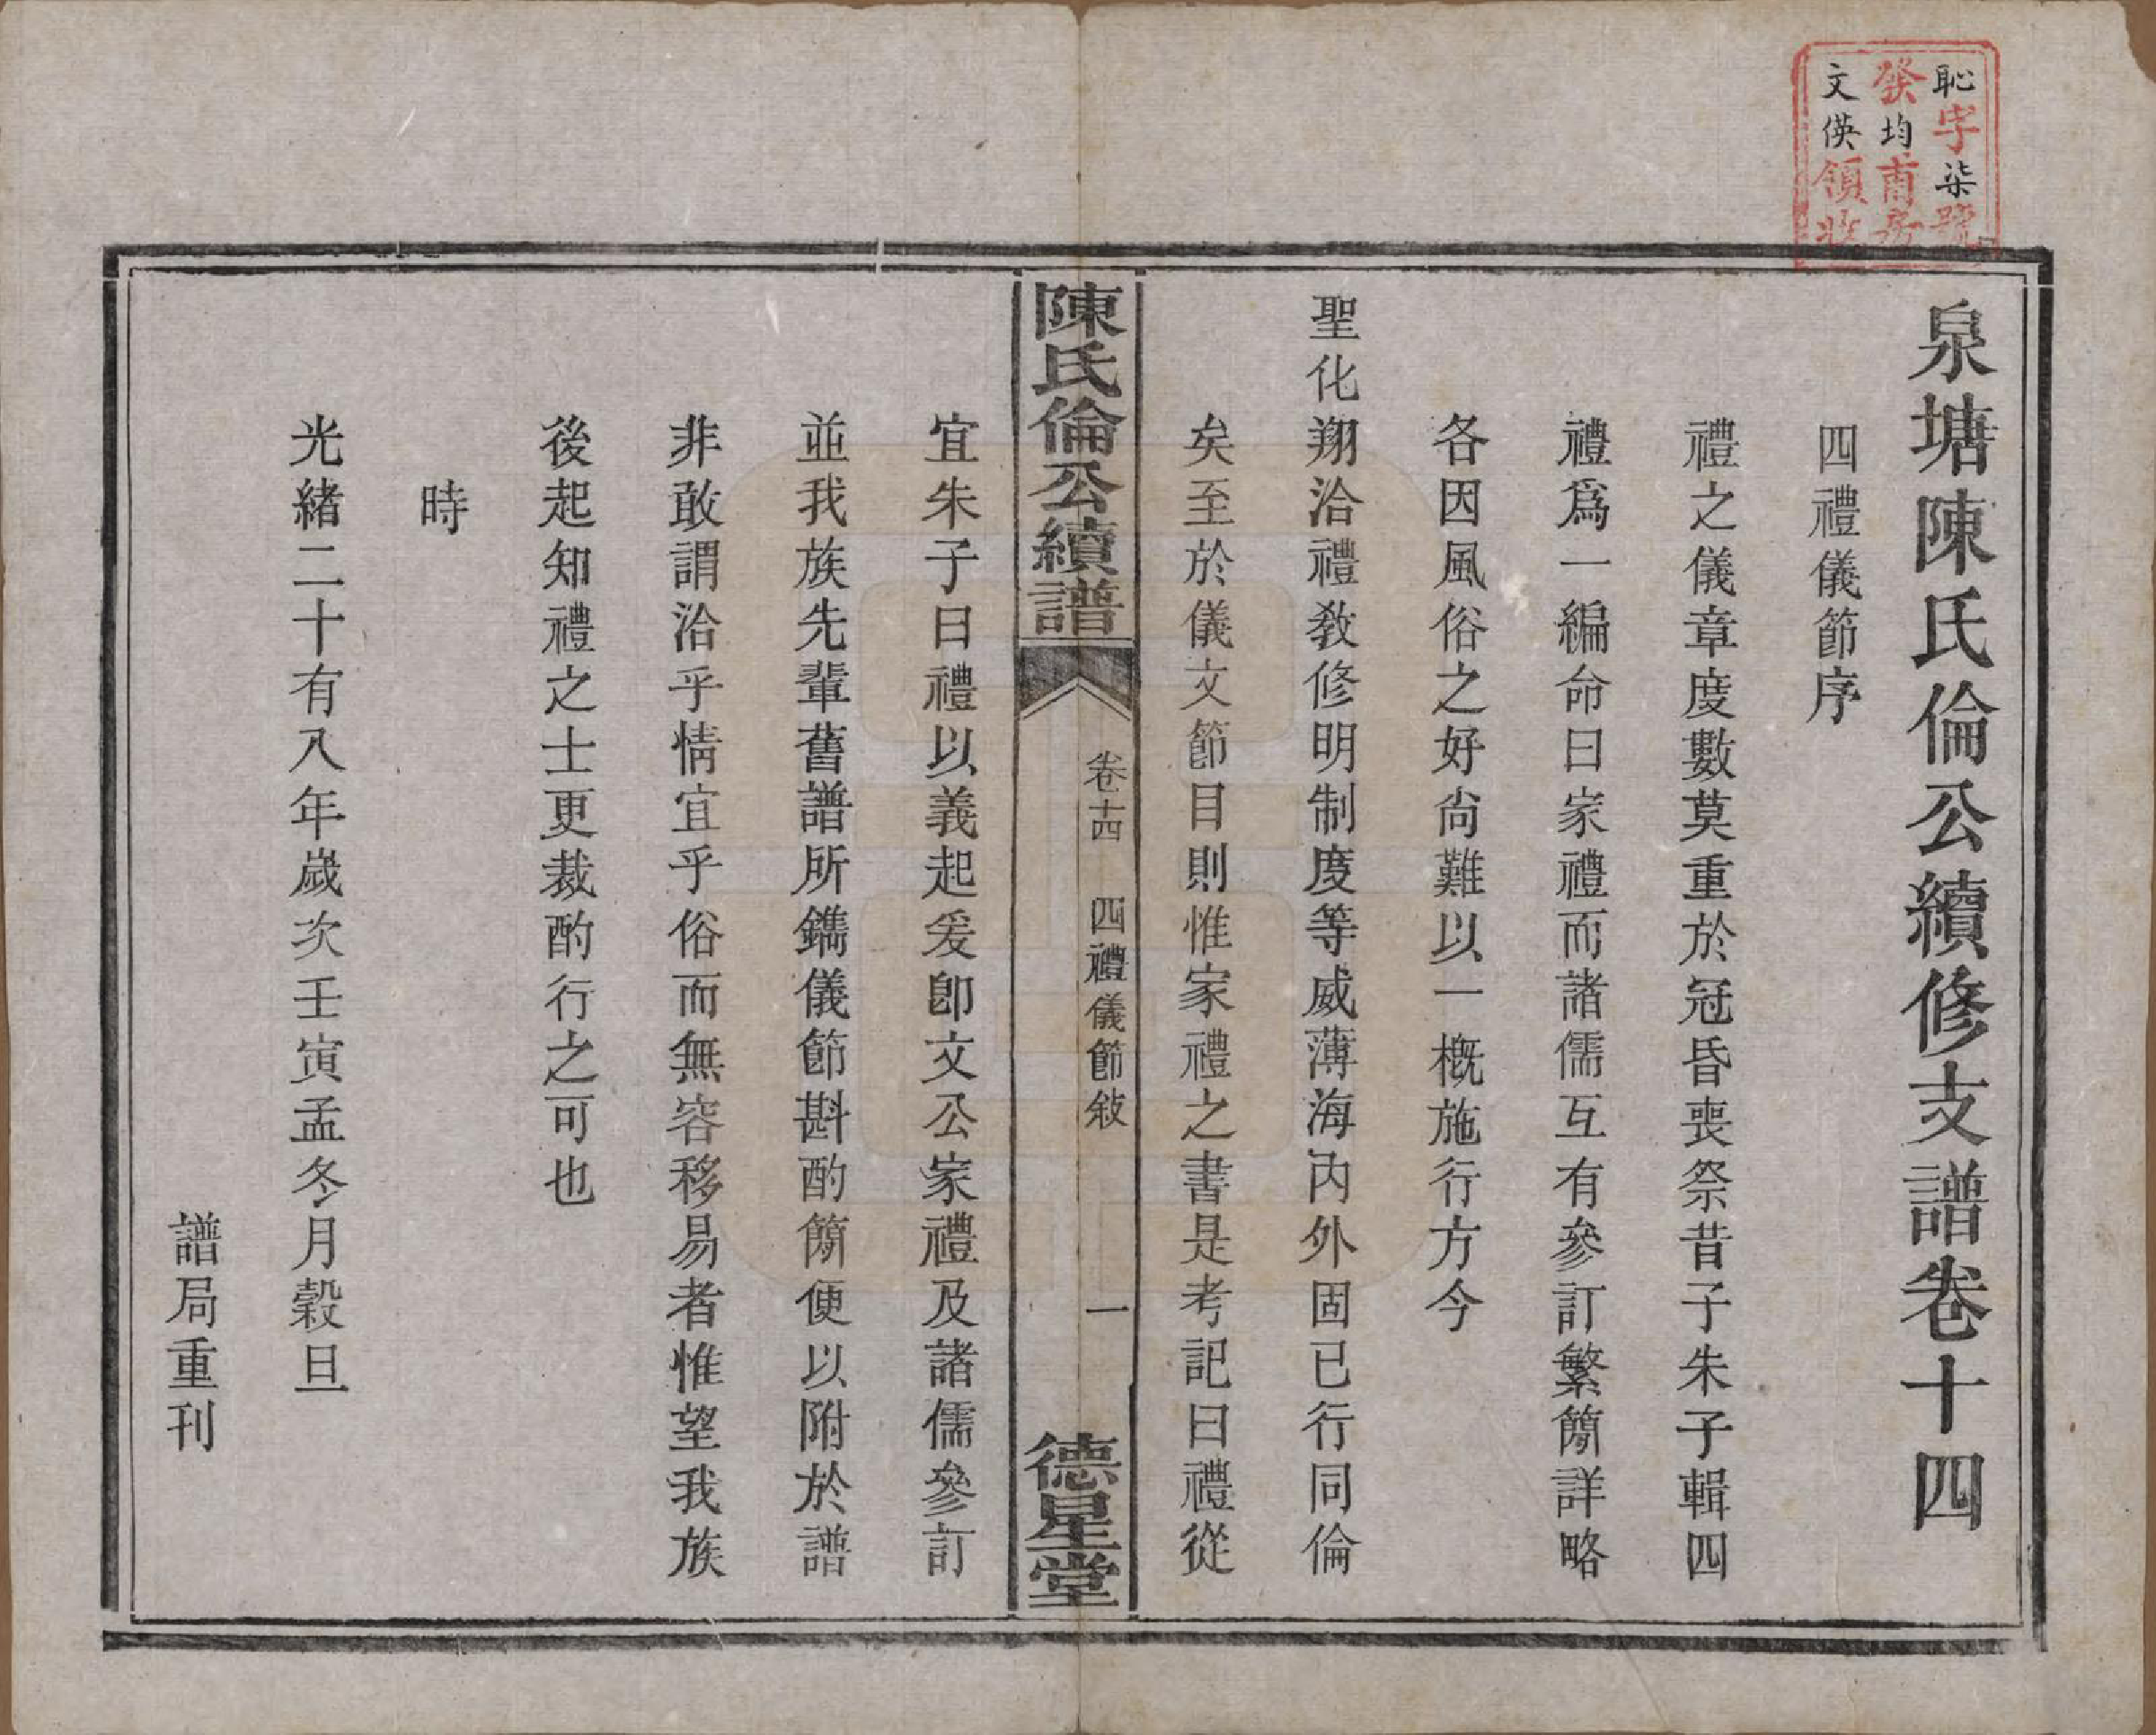 恥字柒號
發均甫房
文偀領收
泉塘陳氏倫公續修支譜卷十四
四禮儀節序
禮之儀章度數莫重於冠昏喪祭昔子朱子輯四
禮爲一編命曰家禮而諸儒互有參訂繁簡詳略
各因風俗之好尙難以一槪施行方今
聖化翔洽禮敎修明制度等威薄海內外固已行同倫
矣至於儀文節目則惟家禮之書是考記曰禮從
陳氏倫公續譜
卷十四
四禮儀節敍
一
德星堂
宜朱子曰禮以義起爰卽文公家禮及諸儒參訂
並我族先輩舊譜所鐫儀節斟酌簡便以附於譜
非敢謂洽乎情宜乎俗而無容移易者惟望我族
後起知禮之士更裁酌行之可也
時
光緒二十有八年歲次壬寅孟冬月穀旦
譜局重刊